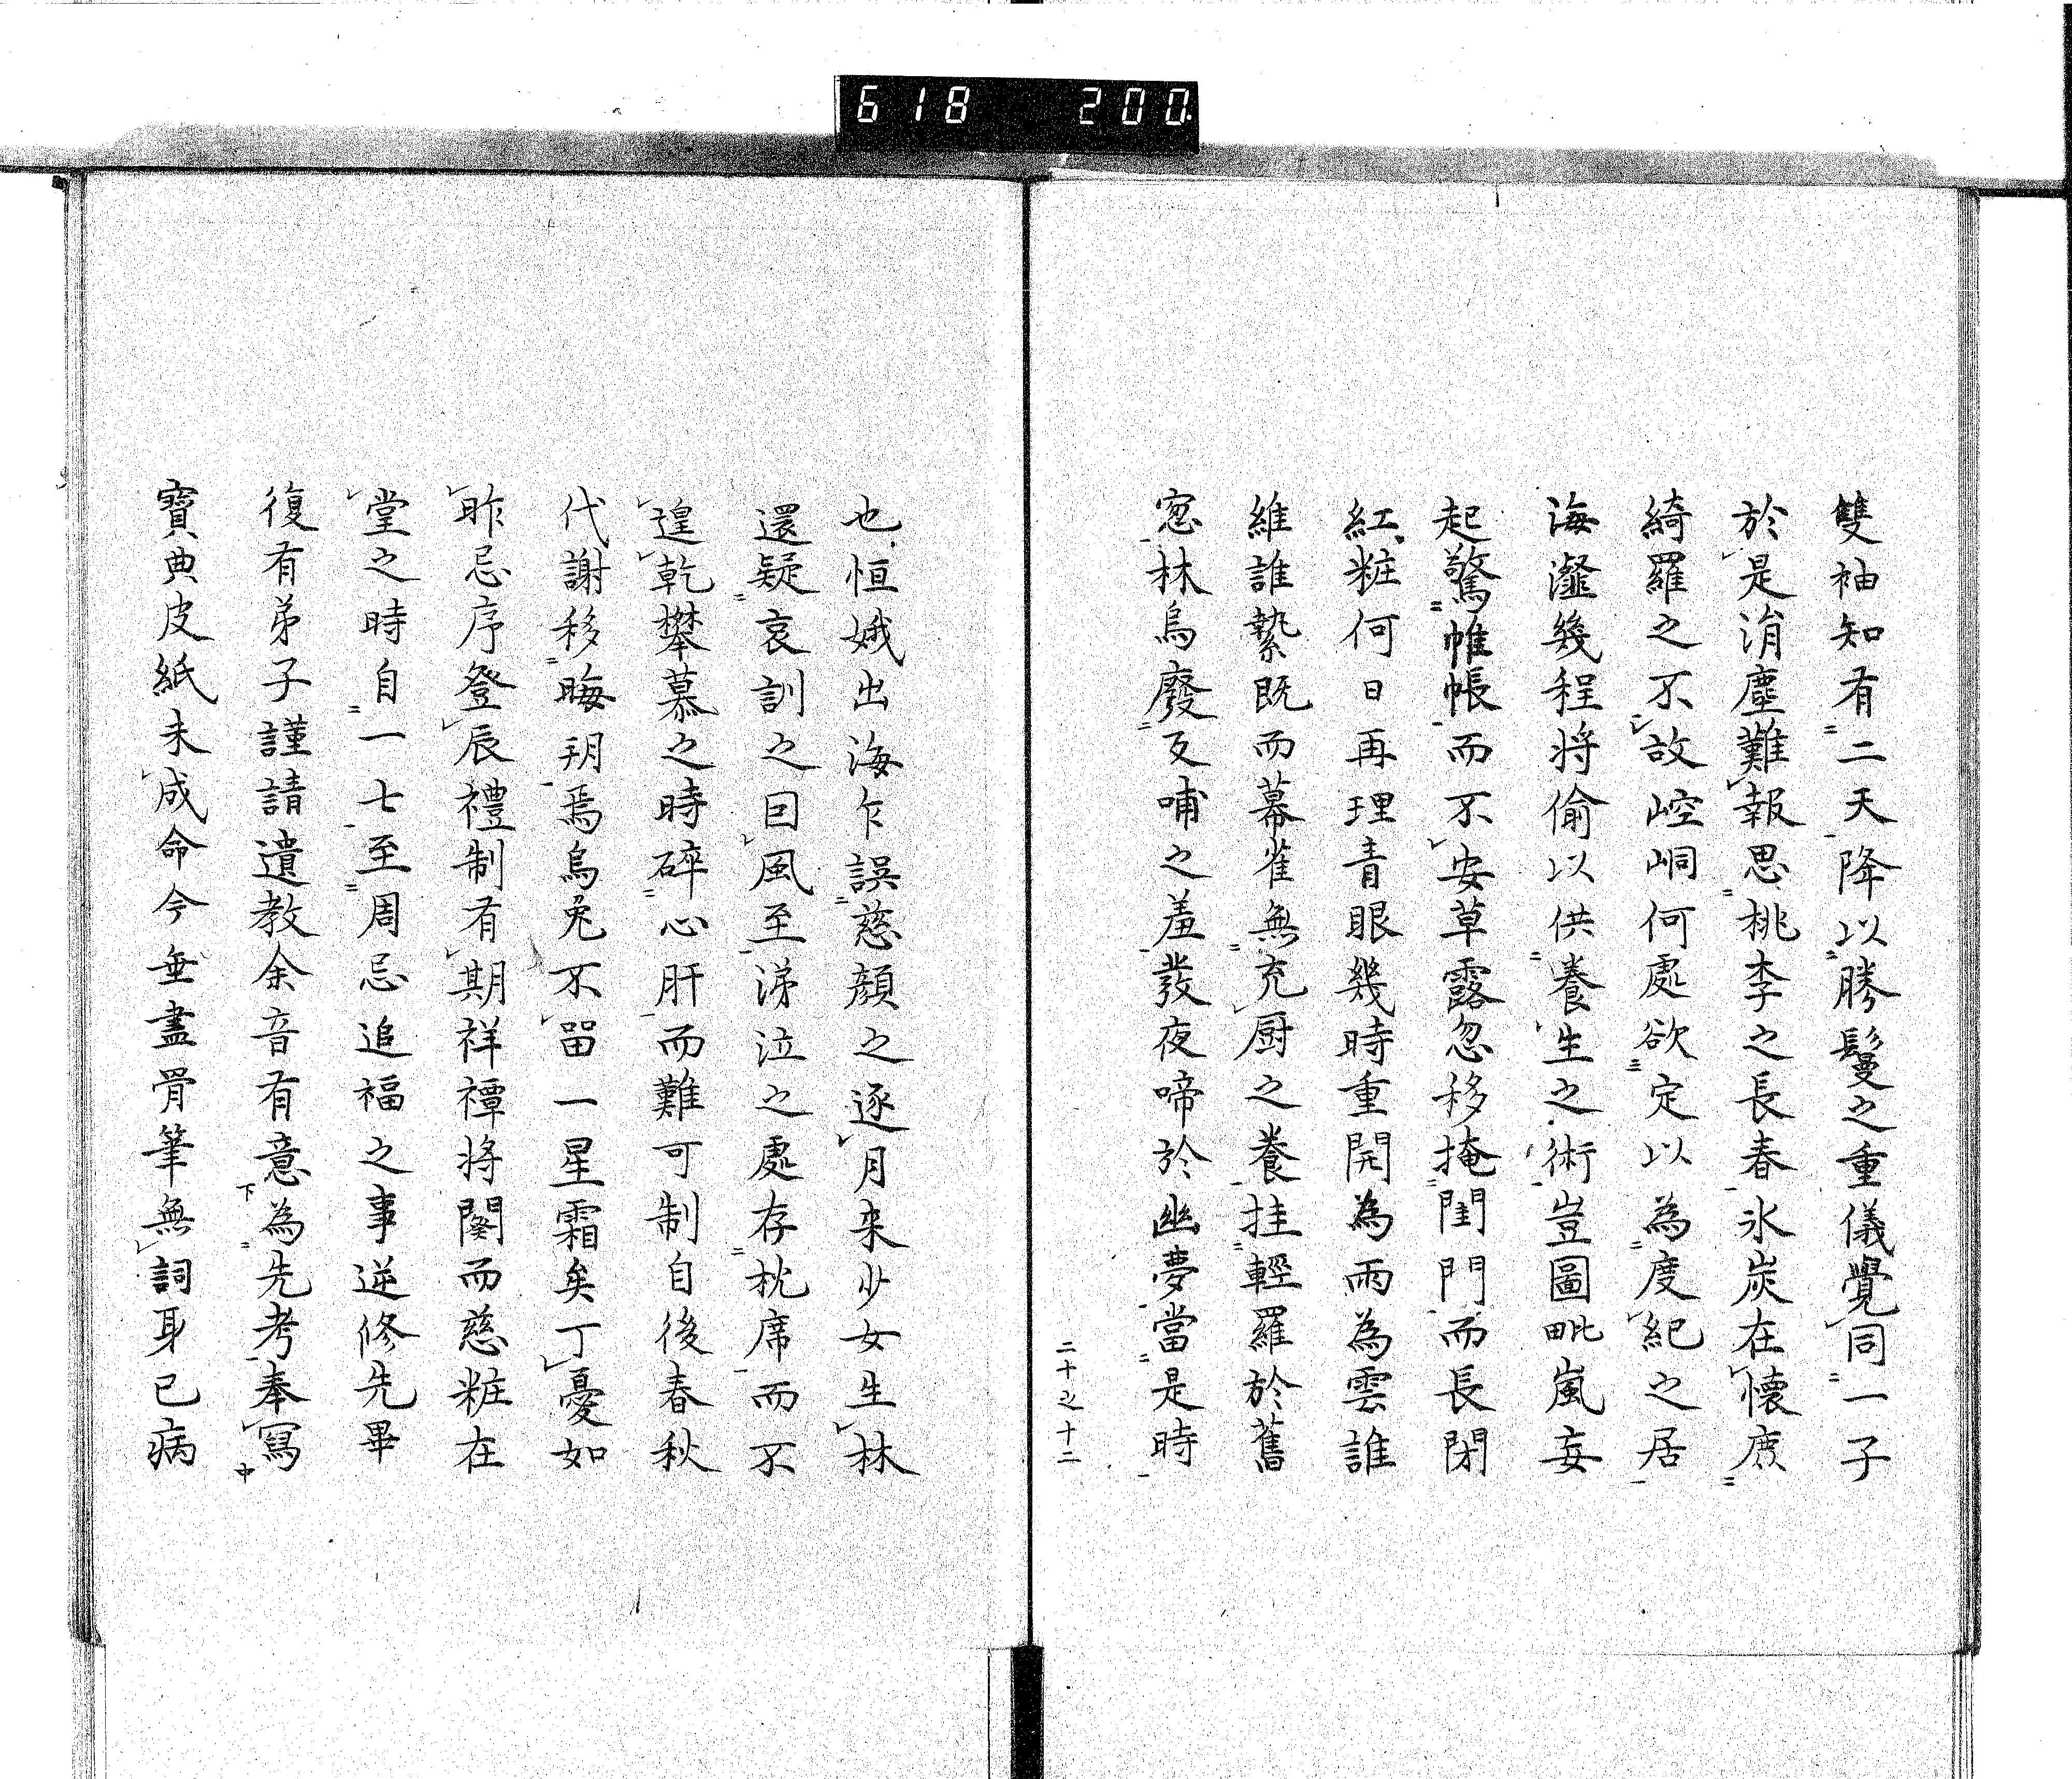 618 200
雙袖知有二天降以勝鬘之重儀覺同一子
於是涓塵難報思桃李之長春氷炭在懷廢
綺羅之不故崆峒何處欲定以為度紀之居
海瀣幾程将偷以供養生之術豈圖毗嵐妄
起驚帷帳而不安草露忽移掩閨門而長閉
紅粧何日再理青眼幾時重開為雨為雲誰
維誰縶既而幕雀無充厨之養挂輕羅於舊
窓林烏廢反哺之羞發夜啼於幽夢當是時
二十之十二
也恒娥出海乍誤慈顔之逐月来少女生林
還疑哀訓之回風至涕泣之處存枕席而不
遑乾攀慕之時碎心肝而難可制自後春秋
代謝移晦朔焉烏兔不留一星霜矣丁憂如
昨忌序登辰禮制有期祥禫将闋而慈粧在
堂之時自一七至周忌追福之事逆修先畢
復有弟子謹請遺教余音有意為先考奉寫
寶典皮紙未成命今垂盡骨筆無詞身已病